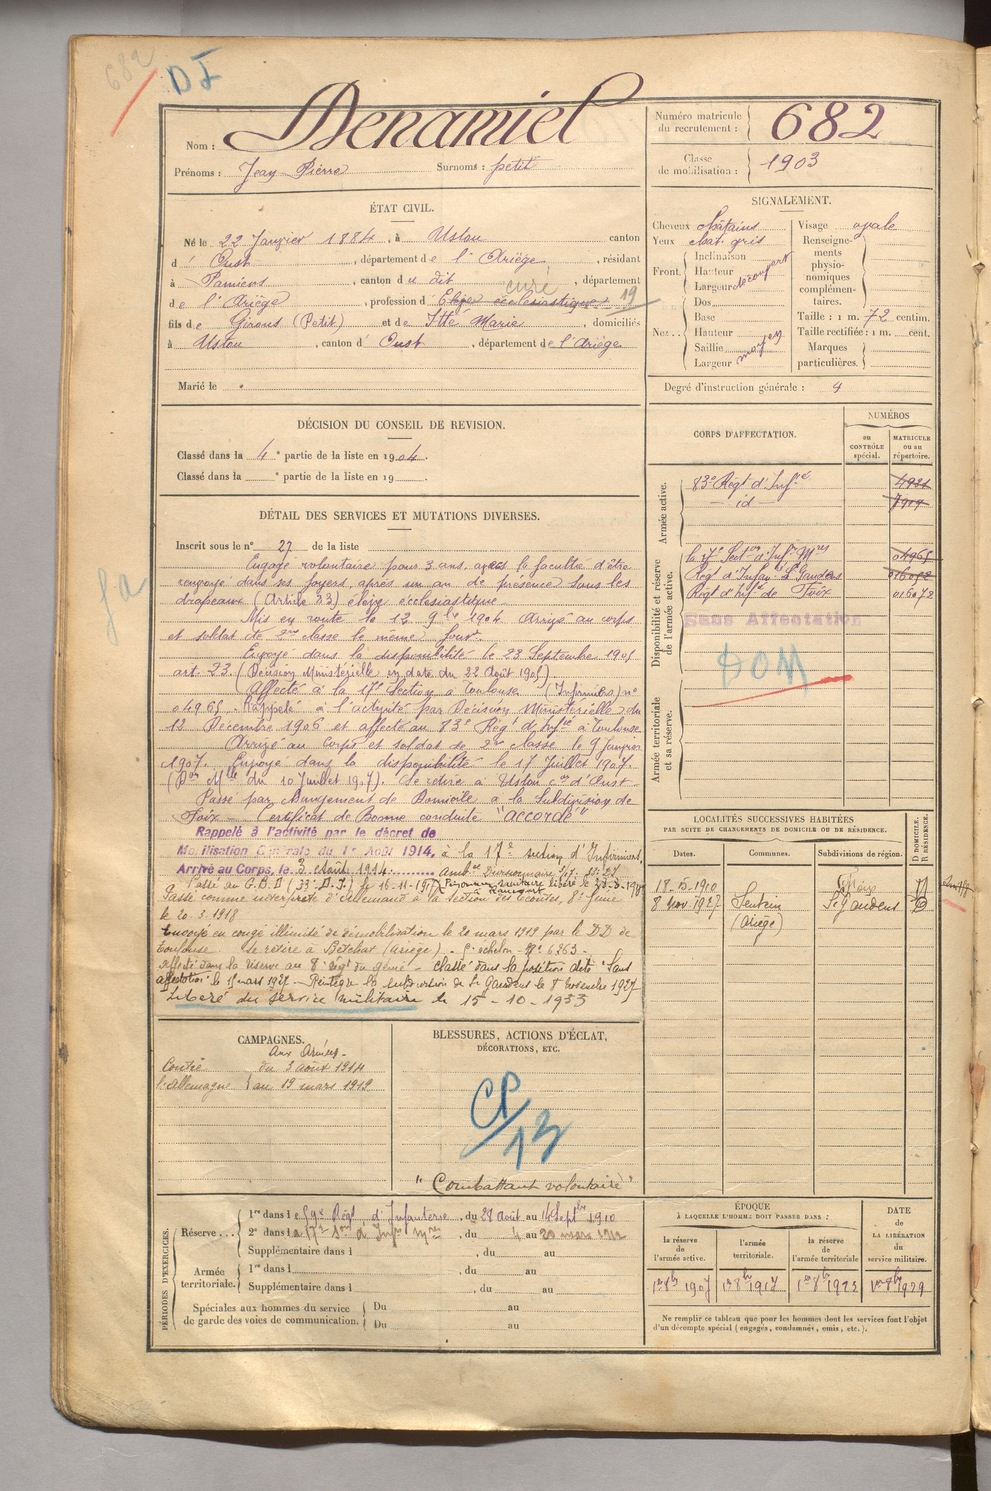 682
D I
Nom : Denamiel
Prénoms : Jean Pierre Surnoms : petit
Numéro matricule du recrutement : 682
Classe de mobilisation : 1903
ÉTAT CIVIL.
Né le 22 Janvier 1884, à Ustou canton
d' Oust, département de l'Ariège, résidant
à Pamiers, canton du dit, département
curé
de l'Ariège, profession d' Élève ecclésiastique 19
fils de Girons (Petit) et de Itté Marie, domiciliés
à Ustou, canton d' Oust, département de l'Ariège
Marié le
SIGNALEMENT.
Cheveux châtains
Yeux chat. gris
Front. Inclinaison
Hauteur
Largeur découvert
Nez. Dos
Base
Hauteur
Saillie
Largeur moyen
Visage ovale
Renseignements physionomiques complémentaires.
Taille : 1 m. 72 centim.
Taille rectifiée : 1 m. cent.
Marques particulières.
Degré d'instruction générale : 4
DÉCISION DU CONSEIL DE REVISION.
Classé dans la 4e partie de la liste en 1904.
Classé dans la e partie de la liste en 19
DÉTAIL DES SERVICES ET MUTATIONS DIVERSES.
Inscrit sous le n° 27 de la liste
Engagé volontaire pour 3 ans, avec la faculté d'être
renvoyé dans ses foyers, après un an de présence sous les
drapeaux (Article 23) élève écclésiastique
Mis en route le 12 9bre 1904 Arrivé au corps
et soldat de 2me classe le même jour.
Envoyé dans la disponibilité le 23 Septembre 1905
art. 23. (Décision Ministérielle en date du 22 Août 1905)
Affecté à la 17e Section à Toulouse (Infirmiers) n°
04965. Rappelé à l'activité par Décision Ministérielle du
12 Décembre 1906 et affecté au 83e Régt d'Infie à Toulouse
Arrivé au Corps et soldat de 2e classe le 9 Janvier
1907. Envoyé dans la disponibilité le 17 Juillet 1907.
(Don Mlle du 10 Juillet 1907). Se retire à Ustou con d'Oust
Passé par changement de Domicile à la Subdivision de
Foix — Certificat de Bonne conduite "accordé"
Rappelé à l'activité par le décret de
Mobilisation Générale du 1er Août 1914, à la 17e section d'Infirmiers,
Arrivé au Corps, le 3 Août 1914.
Passé au G.B.D (33e D.I) le 16-11-1917
Passé comme interprète d'allemand à la section des écoutes, 8e Génie
le 20.3.1918
Envoyé en congé illimité de démobilisation le 20 mars 1919 par le DD de
Toulouse se retire à Betchat (Ariège) échelon N° 6363
affecté dans la réserve au 8e Régt du Génie — classé dans la position dite "Sans
affectation" le 15 mars 1927 — Réintègre la subdivision de St Gaudens le 8 novembre 1927
Libéré du service militaire le 15-10-1933
CORPS D'AFFECTATION.
NUMÉROS
au CONTRÔLE spécial.
MATRICULE ou au répertoire.
Armée active.
83e Régt d'Infie 4921
— id — 7917
Disponibilité et réserve de l'armée active.
la 17e Section d'Infirs Mres 04965
Régt d'Infan. St Gaudens 016052
Régt d'Inf. de Foix 016072
Sans Affectation
DOM
Armée territoriale et sa réserve.
LOCALITÉS SUCCESSIVES HABITÉES
PAR SUITE DE CHANGEMENTS DE DOMICILE OU DE RÉSIDENCE.
Dates. Communes. Subdivisions de région. D DOMICILE. R RÉSIDENCE.
18-5-1910 Foix D
8 nov. 1927 Sentein (Ariège) St Gaudens D
CAMPAGNES.
Aux Armées
Contre l'Allemagne du 3 août 1914
au 19 mars 1919
BLESSURES, ACTIONS D'ÉCLAT,
DÉCORATIONS, ETC.
CP/13
"Combattant volontaire"
PÉRIODES D'EXERCICES.
Réserve... 1re dans le 59e Régt d'Infanterie, du 28 Août au 14 Septbre 1910
2e dans la 17e Son d'Infrs Mres, du 4 au 20 mars 1912
Supplémentaire dans l , du au
Armée territoriale. 1re dans l , du au
Supplémentaire dans l , du au
Spéciales aux hommes du service de garde des voies de communication. Du au
Du au
ÉPOQUE
À LAQUELLE L'HOMME DOIT PASSER DANS :
la réserve de l'armée active. l'armée territoriale. la réserve de l'armée territoriale
DATE DE LA LIBÉRATION du service militaire.
1er 8bre 1907 1er 8bre 1917 1er 8bre 1923 1er 8bre 1929
Ne remplir ce tableau que pour les hommes dont les services font l'objet
d'un décompte spécial (engagés, condamnés, omis, etc.).